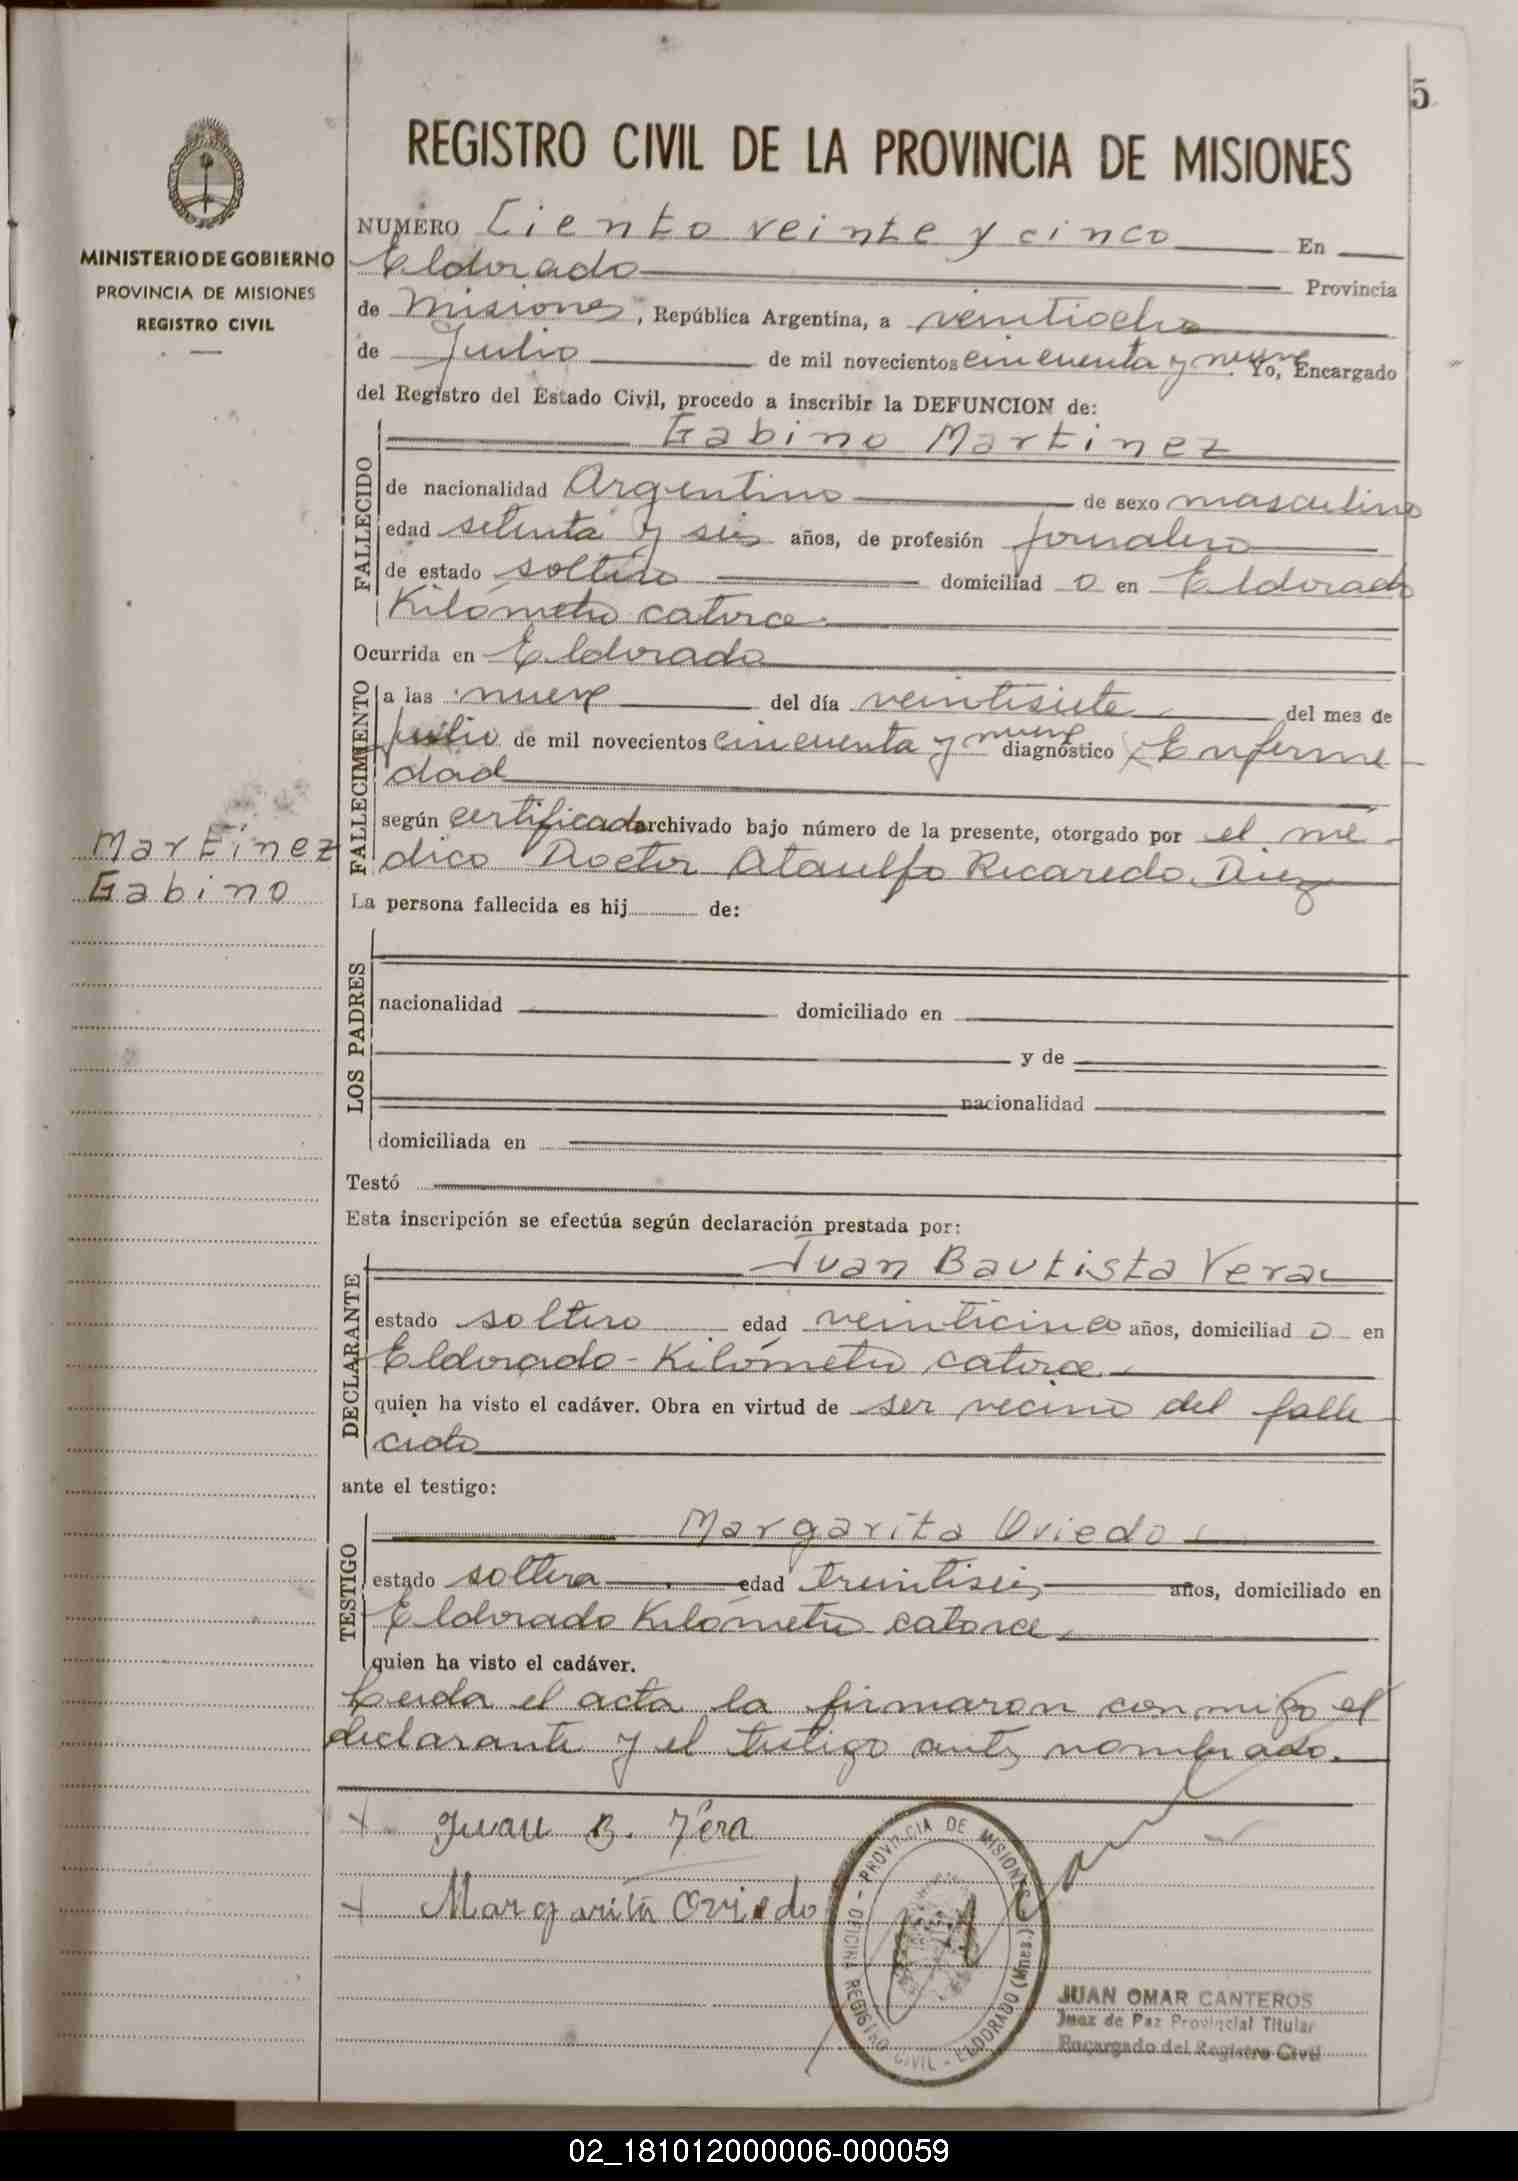 5
REGISTRO CIVIL DE LA PROVINCIA DE MISIONES
MINISTERIO DE GOBIERNO
PROVINCIA DE MISIONES
REGISTRO CIVIL
NUMERO Ciento veinte y cinco En
Eldorado Provincia
de Misiones, República Argentina, a veintiocho
de Julio de mil novecientos cincuenta y nueve Yo, Encargado
del Registro del Estado Civil, procedo a inscribir la DEFUNCION de:
FALLECIDO
Gabino Martinez
de nacionalidad Argentino de sexo masculino
edad setenta y seis años, de profesión jornalero
de estado soltero domiciliad o en Eldorado
Kilómetro catorce.
Ocurrida en Eldorado
FALLECIMIENTO
a las nueve del día veintisiete del mes de
Julio de mil novecientos cincuenta y nueve diagnóstico Enferme
dad
según certificado archivado bajo número de la presente, otorgado por el mé-
dico Doctor Ataulfo Ricaredo Diez
Martinez
Gabino
La persona fallecida es hij de:
LOS PADRES
nacionalidad domiciliado en
y de
nacionalidad
domiciliada en
Testó
Esta inscripción se efectúa según declaración prestada por:
DECLARANTE
Juan Bautista Vera
estado soltero edad veinticinco años, domiciliad o en
Eldorado - Kilómetro catorce
quien ha visto el cadáver. Obra en virtud de ser vecino del falle-
cido
ante el testigo:
TESTIGO
Margarita Oviedo
estado soltera edad treintiseis años, domiciliado en
Eldorado Kilómetro catorce
quien ha visto el cadáver.
Leida el acta la firmaron conmigo el
declarante y el testigo antes nombrado.
Juan B. Vera
Margarita Oviedo
PROVINCIA DE MISIONES
OFICINA REGISTRO CIVIL - ELDORADO (Mnes.)
JUAN OMAR CANTEROS
Juez de Paz Provincial Titular
Encargado del Registro Civil
02_181012000006-000059